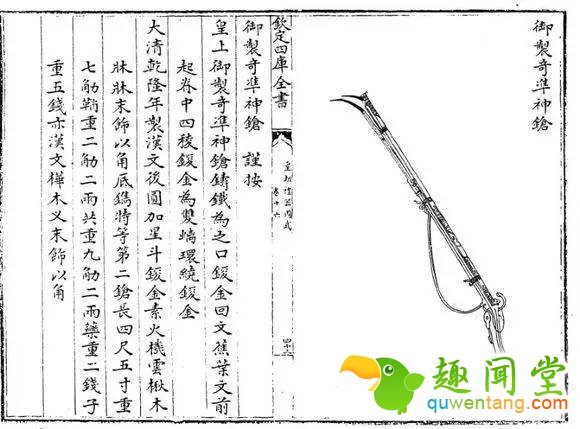 御製奇準神鎗
欽定四庫全書
卷十六
御製奇準神鎗 謹按
皇上御製奇準神鎗鑄鐵為之口鋄金回文蕉葉文前
起脊中四稜鋄金為雙螭環繞鋄金
大清乾隆年製漢文後圓加星斗鋄金素火機雲楸木
牀牀末飾以角底鐫特等第二鎗長四尺五寸重
七觔鞘重二觔二兩共重九觔二兩藥重二錢子
重五錢亦漢文樺木义末飾以角
趣闻堂
quwentang.com